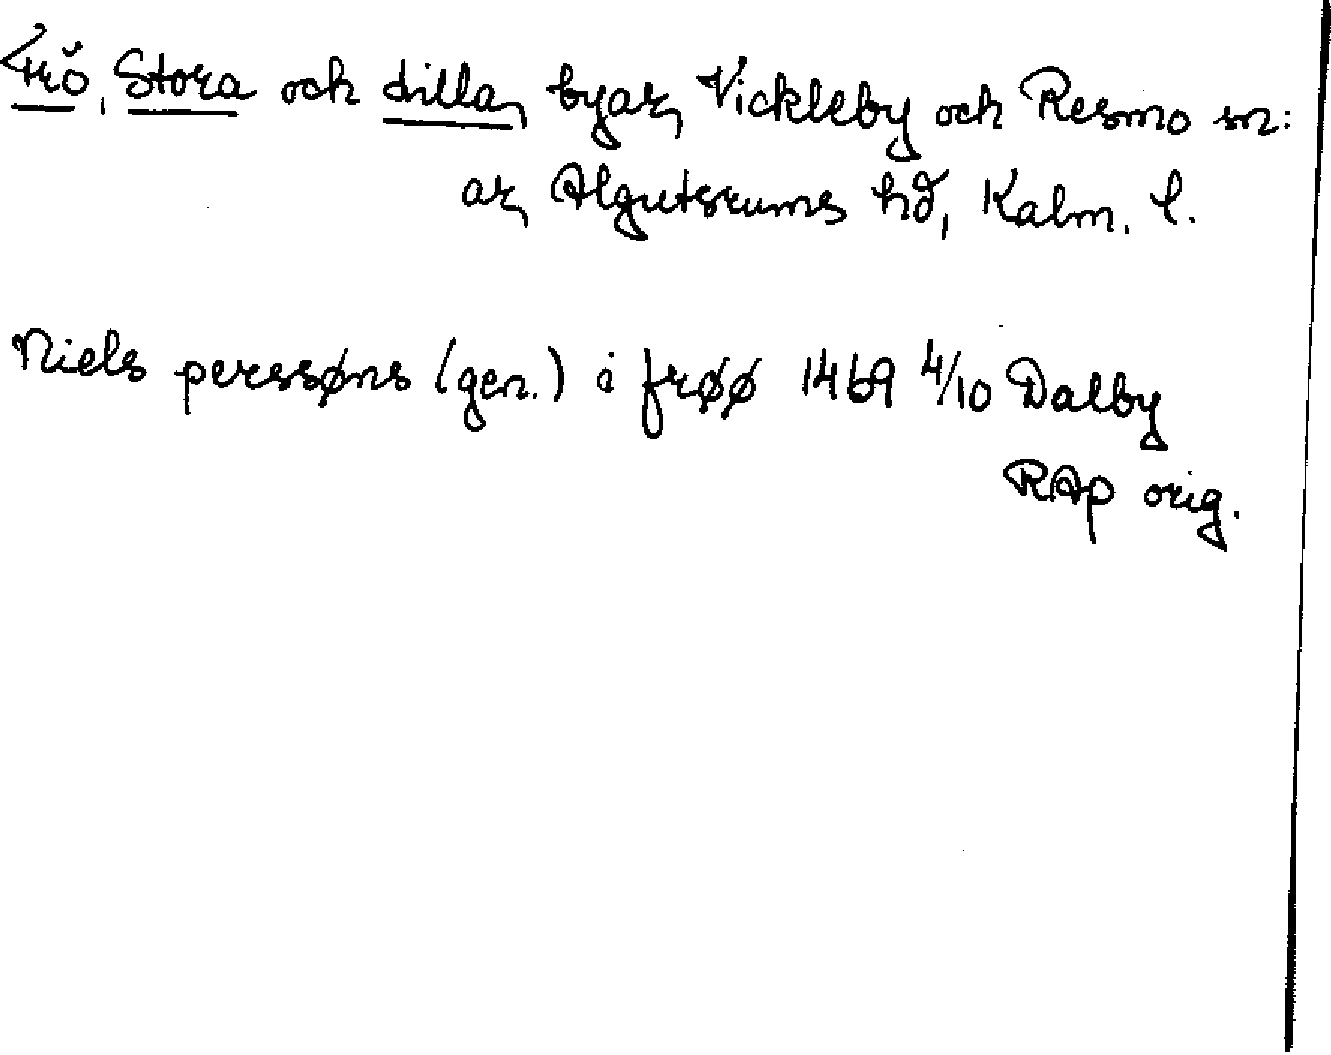 Frö, Stora och Lilla, byar, Vickleby och Resmo sn:
ar, Algutsrums hd, Kalm. l.
Niels perssøns (gen.) i frøø 1469 4/10 Dalby
RAp orig.